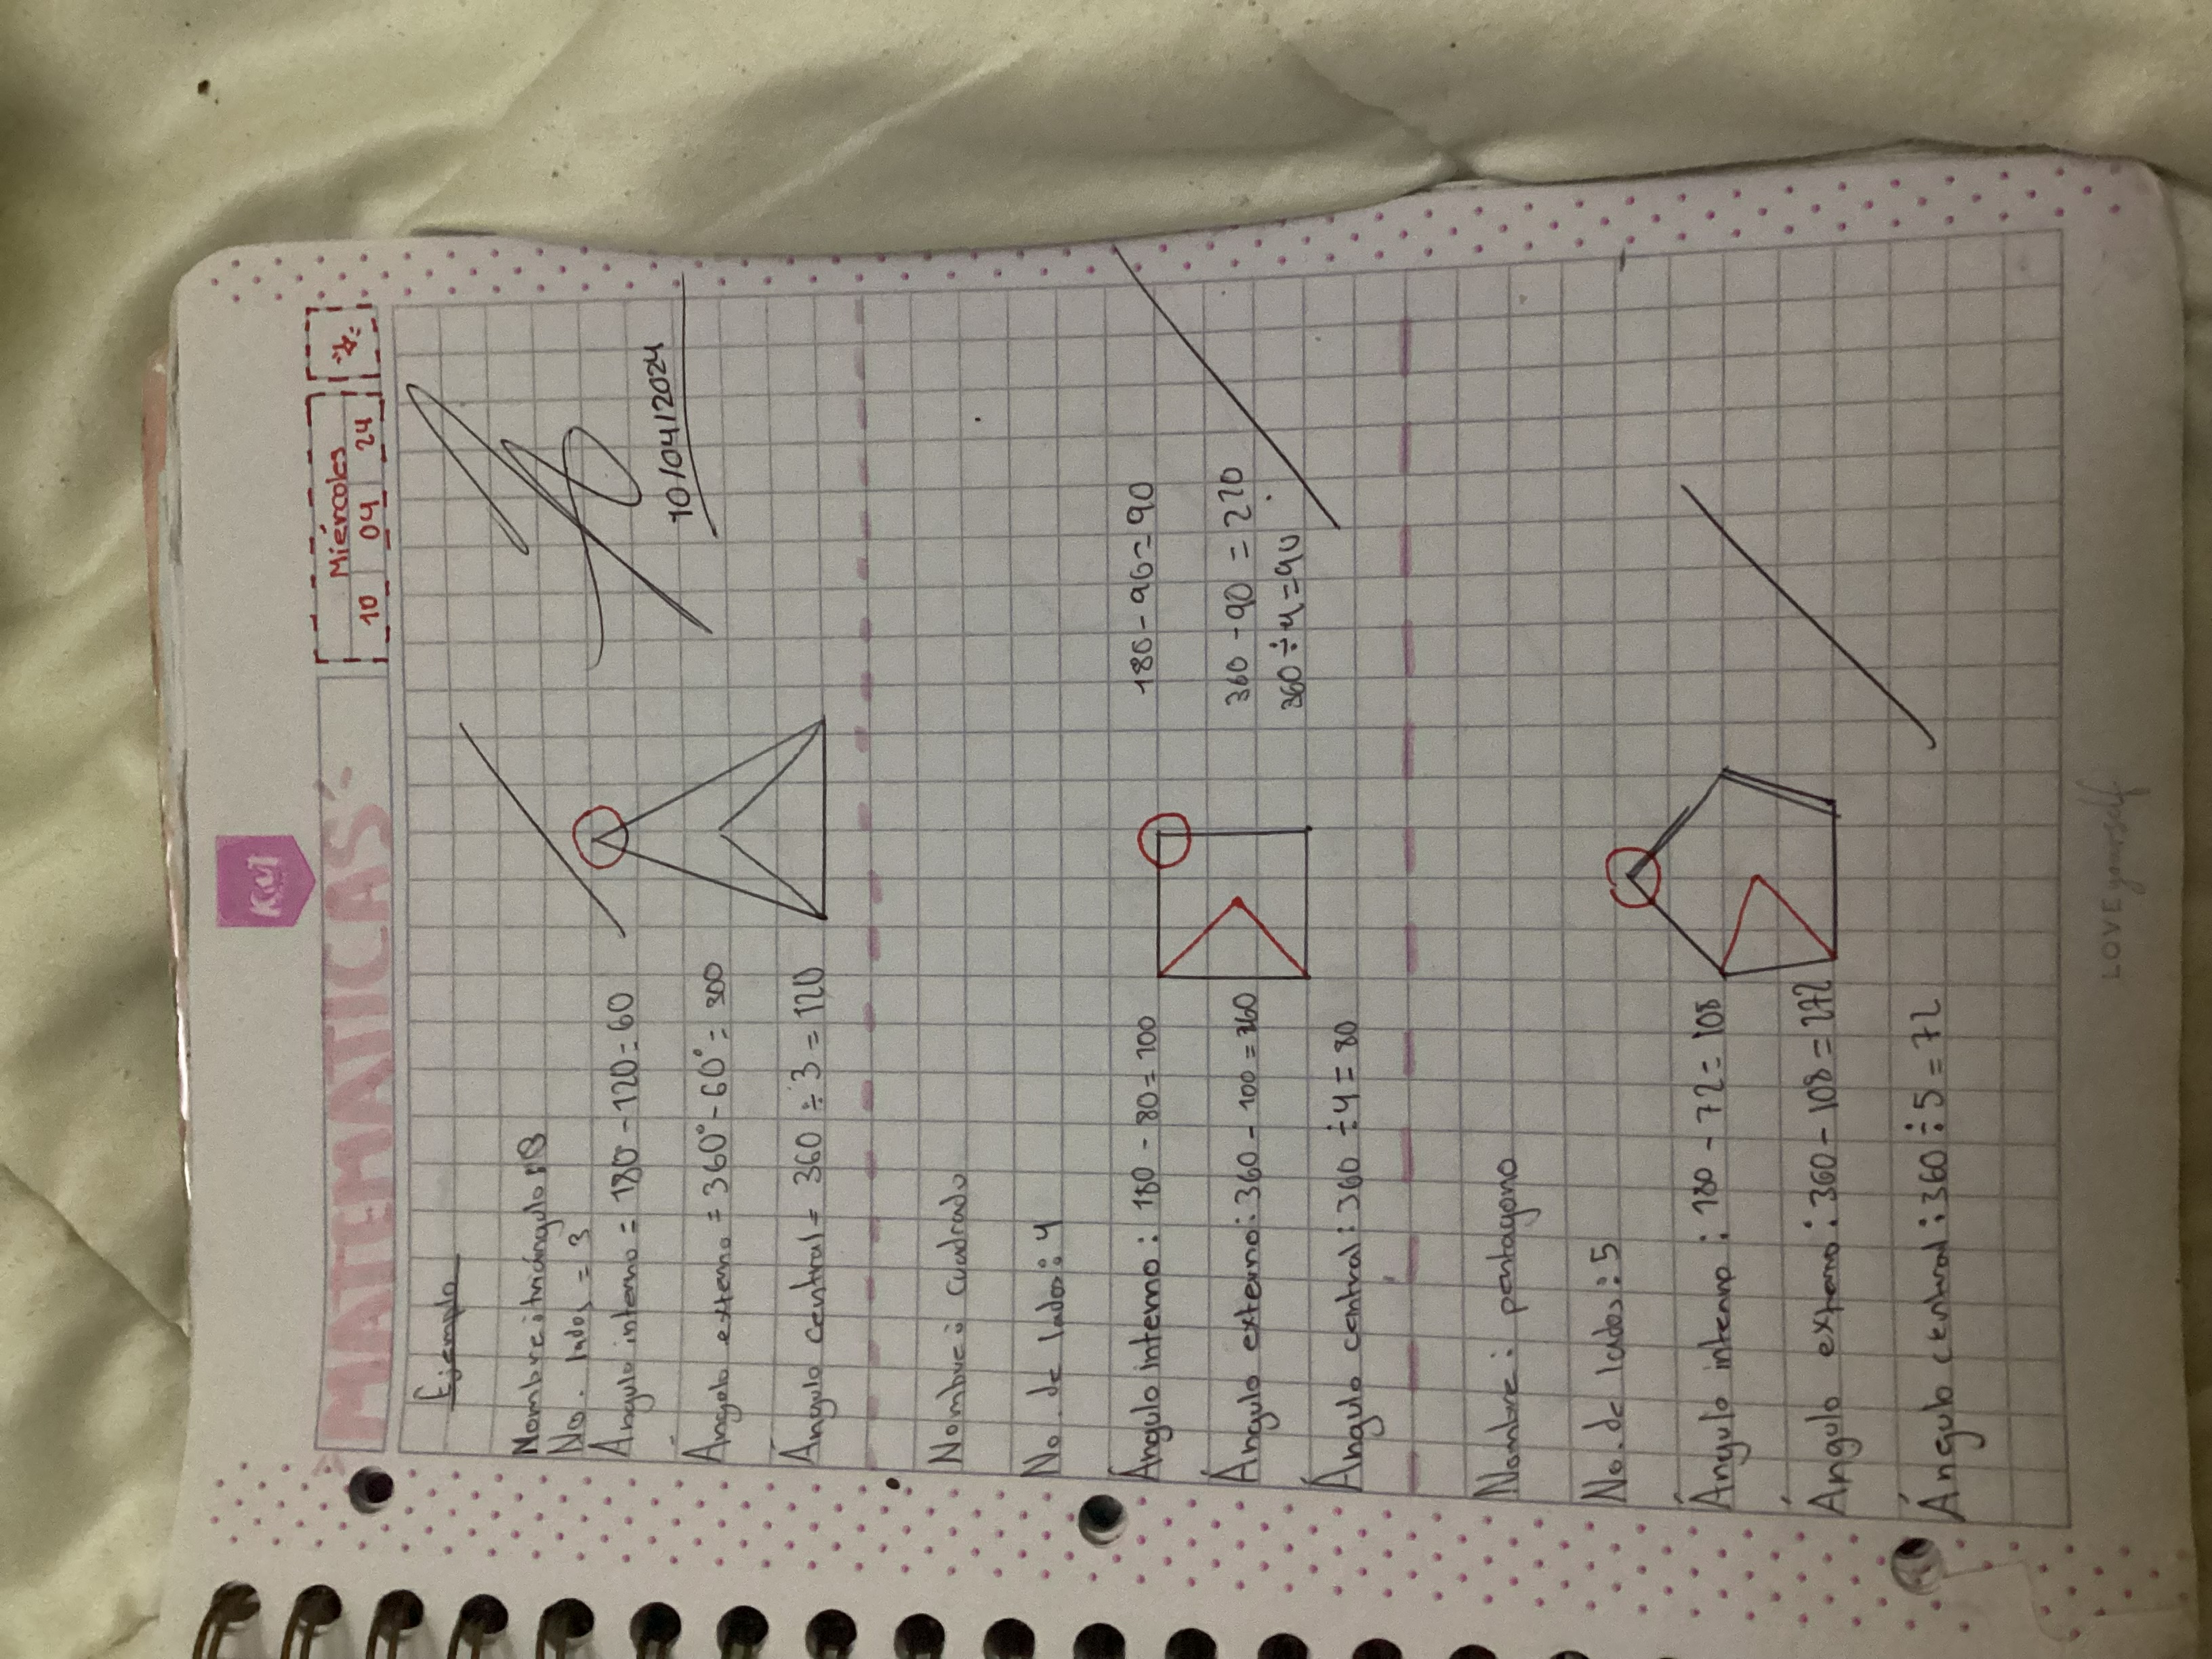 Kut
MATEMATICAS
Miércoles
10 04 24
Ejemplo
10/04/2024
Nombre: triángulo
No. lados = 3
Ángulo interno = 180 - 120 = 60
Ángulo externo = 360° - 60° = 300
Ángulo central = 360 ÷ 3 = 120
Nombre: Cuadrado
No. de lados: 4
Ángulo interno: 180 - 80 = 100
180 - 90 = 90
Ángulo externo: 360 - 100 = 360
360 - 90 = 270
360 ÷ 4 = 90
Ángulo central: 360 ÷ 4 = 80
Nombre: pentagono
No. de lados: 5
Ángulo interno: 180 - 72 = 108
Ángulo externo: 360 - 108 = 272
Ángulo central: 360 ÷ 5 = 72
LOVE yourself